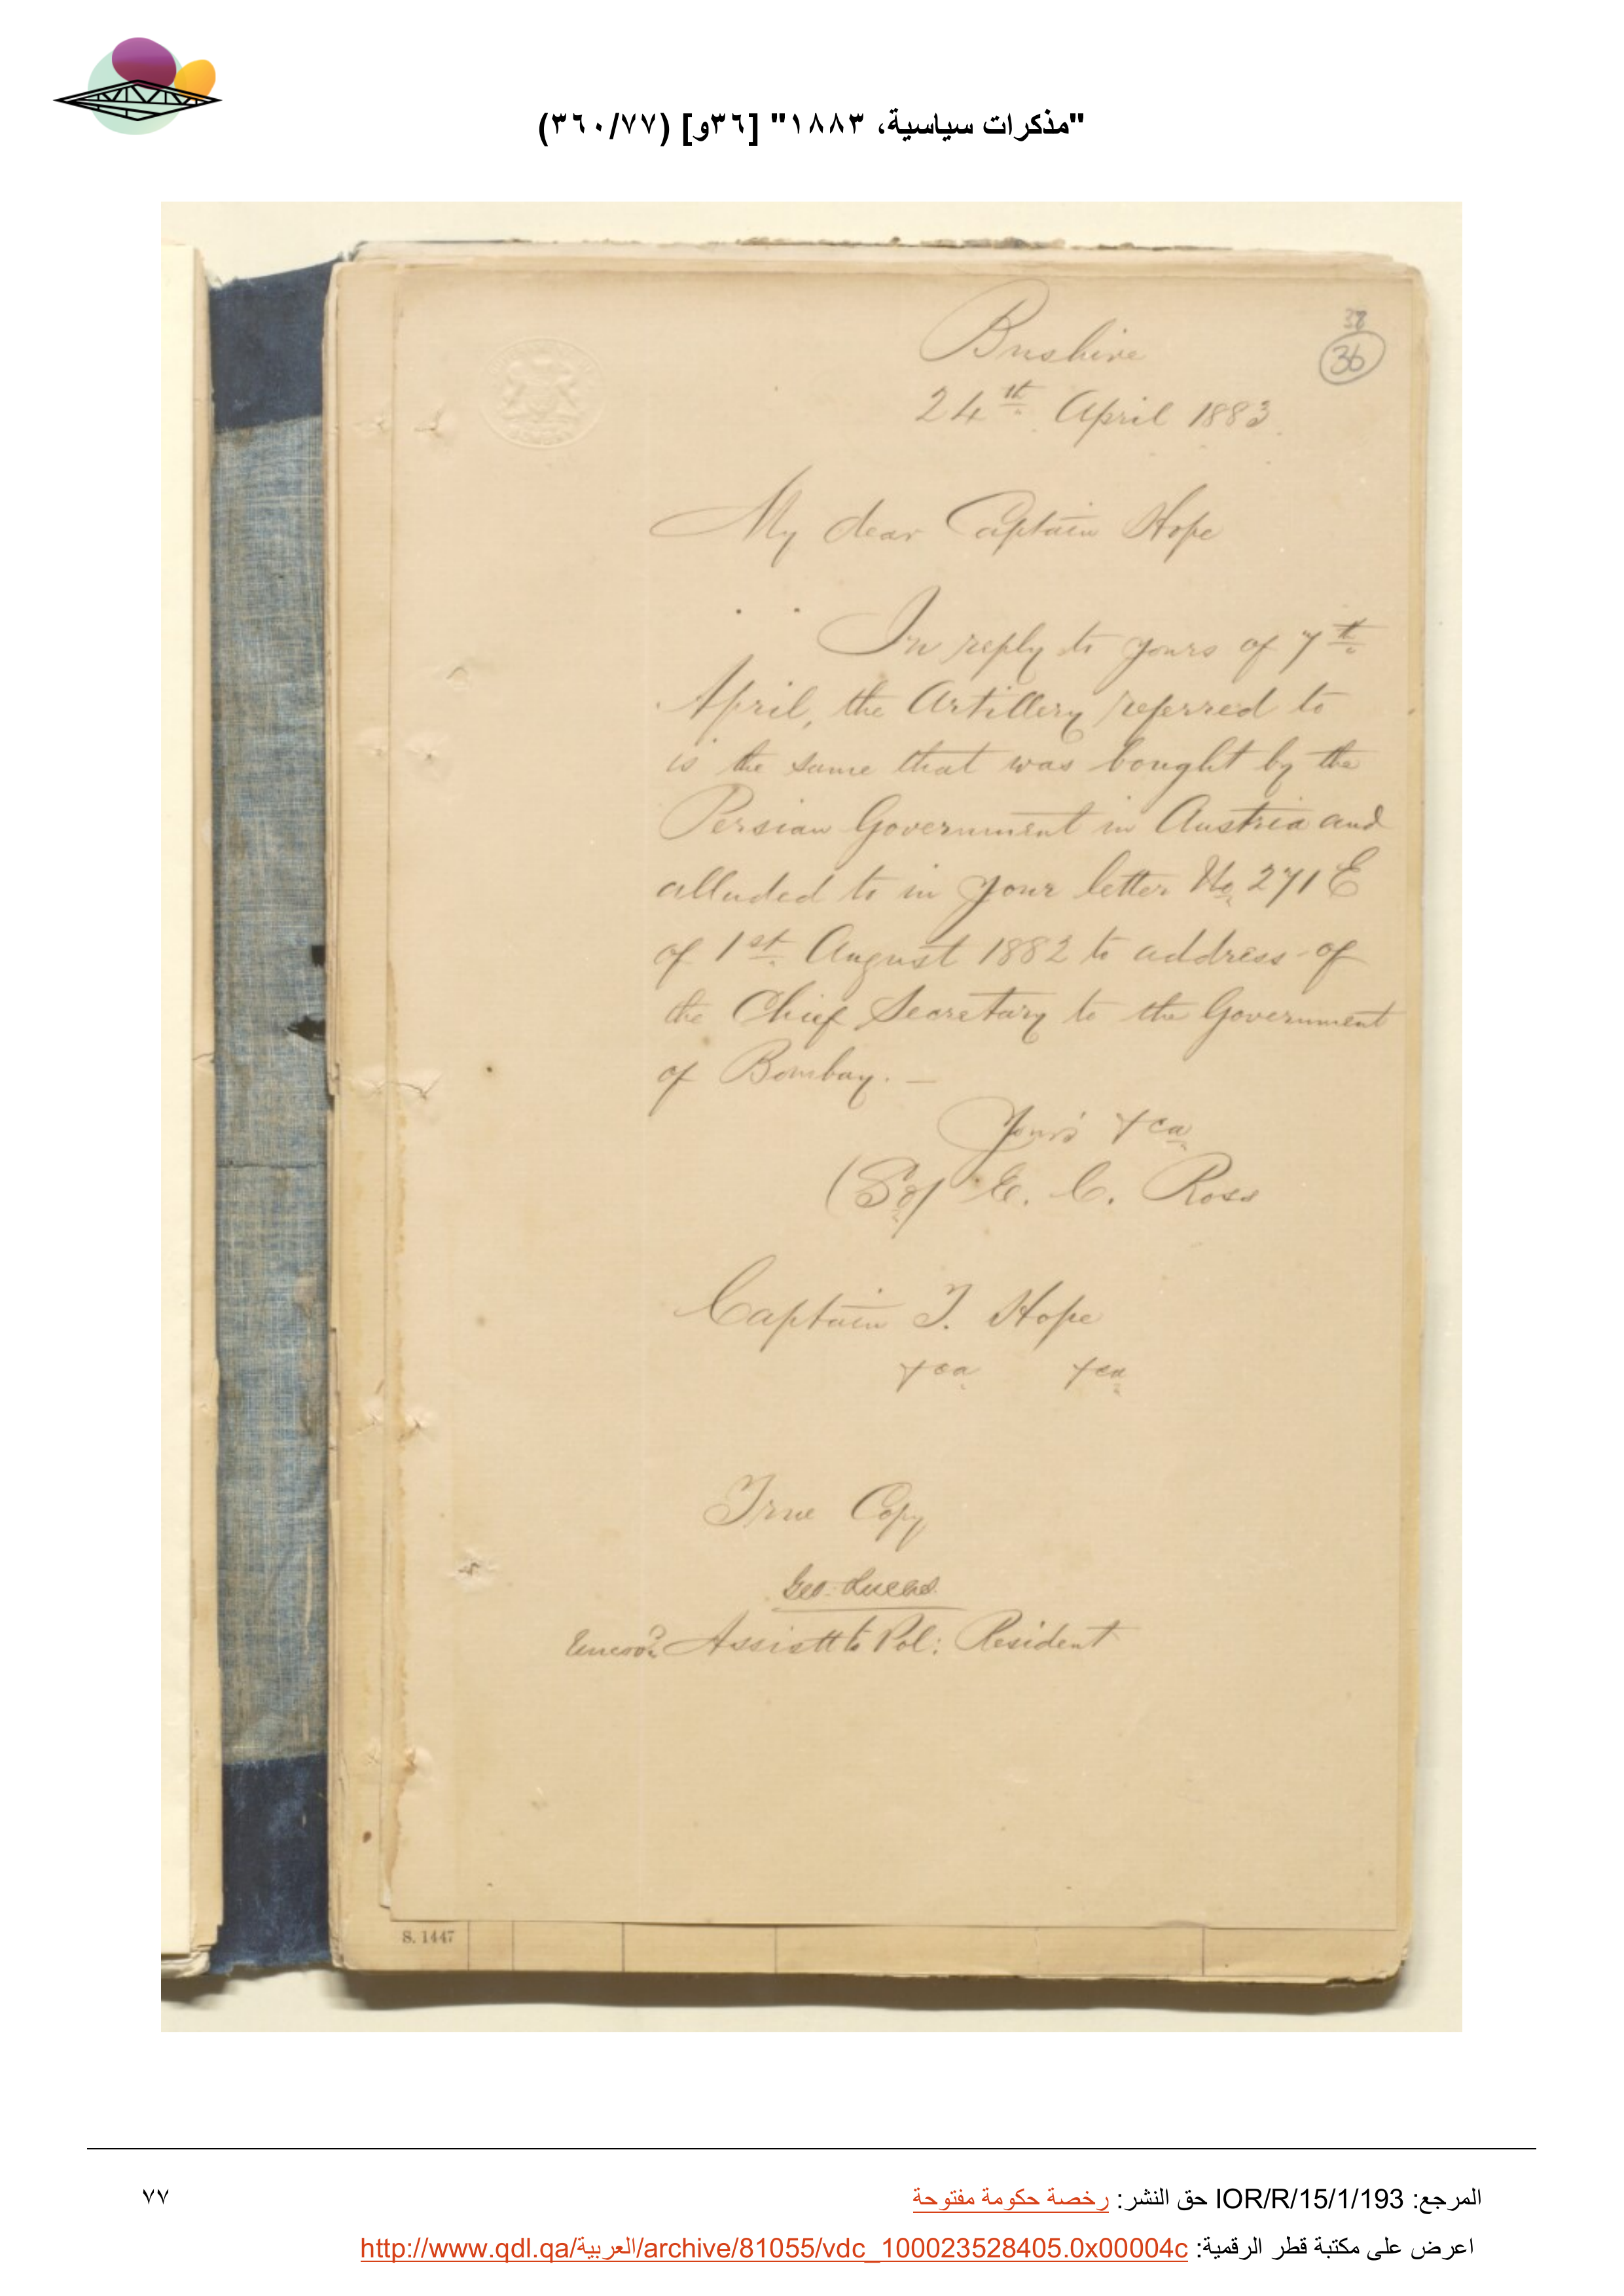 "مذكرات سياسية، ١٨٨٣" [٣٦و] (٣٦٠/٧٧)
Bushire
38
36
24th. April 1883.
My dear Captain Hope
In reply to yours of 7th.
April, the Artillery referred to
is the same that was bought by the
Persian Government in Austria and
alluded to in your letter No. 271 E
of 1st. August 1882 to address of
the Chief Secretary to the Government
of Bombay. —
Yours &ca.
(Sd/ E. C. Ross
Captain T. Hope
&ca. &ca.
True Copy
Geo. Lucas.
Uncovd. Assistt to Pol: Resident
S. 1447
المرجع: IOR/R/15/1/193 حق النشر: رخصة حكومة مفتوحة
٧٧
اعرض على مكتبة قطر الرقمية: http://www.qdl.qa/العربية/archive/81055/vdc_100023528405.0x00004c